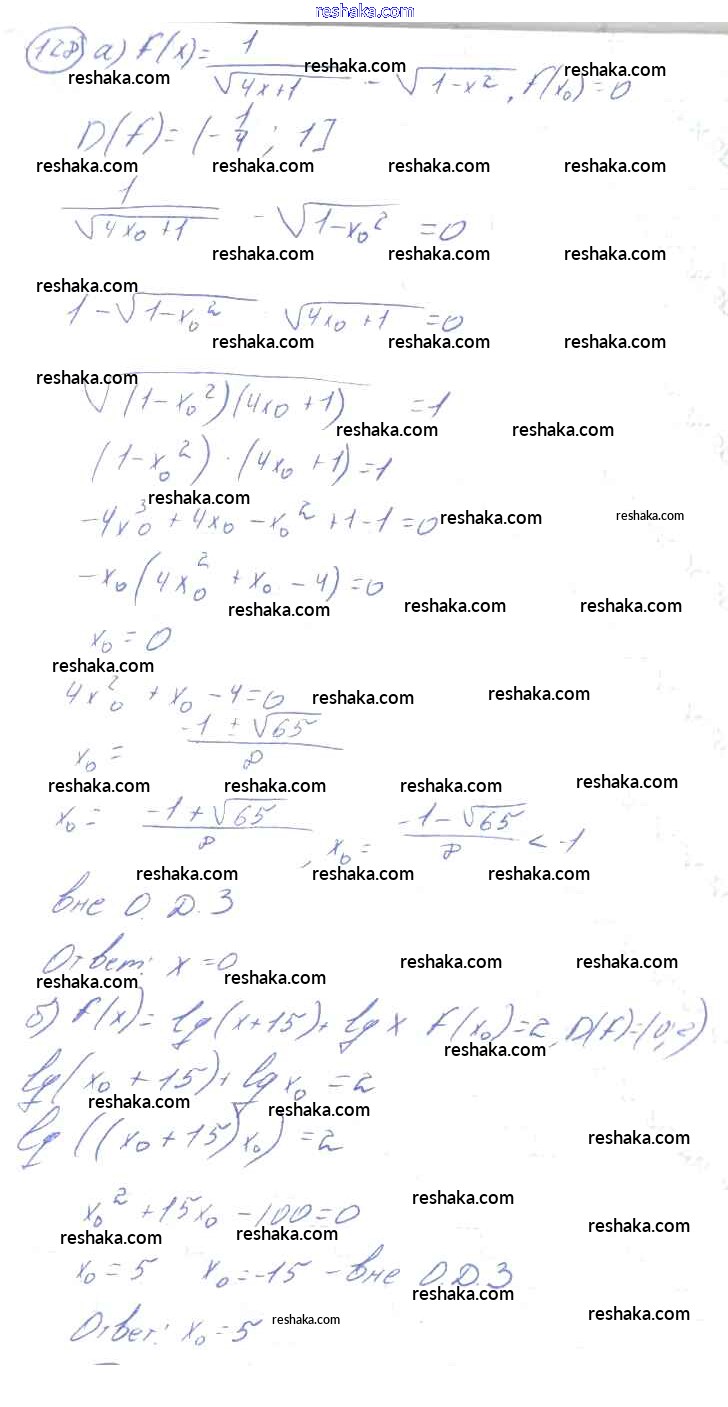 reshaka.com
128 а) f(x) = 1/√(4x+1) - √(1-x²), f(x₀) = 0
reshaka.com reshaka.com reshaka.com
D(f) = (-1/4; 1]
reshaka.com reshaka.com reshaka.com reshaka.com
1/√(4x₀+1) - √(1-x₀²) = 0
reshaka.com reshaka.com reshaka.com
reshaka.com
1 - √(1-x₀²) √(4x₀+1) = 0
reshaka.com reshaka.com reshaka.com
reshaka.com
√((1-x₀²)(4x₀+1)) = 1
reshaka.com reshaka.com
(1-x₀²)·(4x₀+1) = 1
reshaka.com
-4x₀³ + 4x₀ - x₀² + 1 - 1 = 0
reshaka.com reshaka.com
-x₀(4x₀² + x₀ - 4) = 0
reshaka.com reshaka.com reshaka.com
x₀ = 0
reshaka.com
4x₀² + x₀ - 4 = 0
reshaka.com reshaka.com
x₀ = (-1 ± √65)/8
reshaka.com reshaka.com reshaka.com reshaka.com
x₀ = (-1 + √65)/8, x₀ = (-1 - √65)/8 < -1
reshaka.com reshaka.com reshaka.com
вне О.Д.З
Ответ: x = 0
reshaka.com reshaka.com reshaka.com reshaka.com
б) f(x) = lg(x+15) + lg x f(x₀) = 2, D(f) =
reshaka.com
lg(x₀+15) + lg x₀ = 2
reshaka.com reshaka.com
lg((x₀+15)x₀) = 2
reshaka.com
x₀² + 15x₀ - 100 = 0
reshaka.com reshaka.com
reshaka.com reshaka.com
x₀ = 5 x₀ = -15 - вне О.Д.З
reshaka.com reshaka.com
Ответ: x₀ = 5
reshaka.com